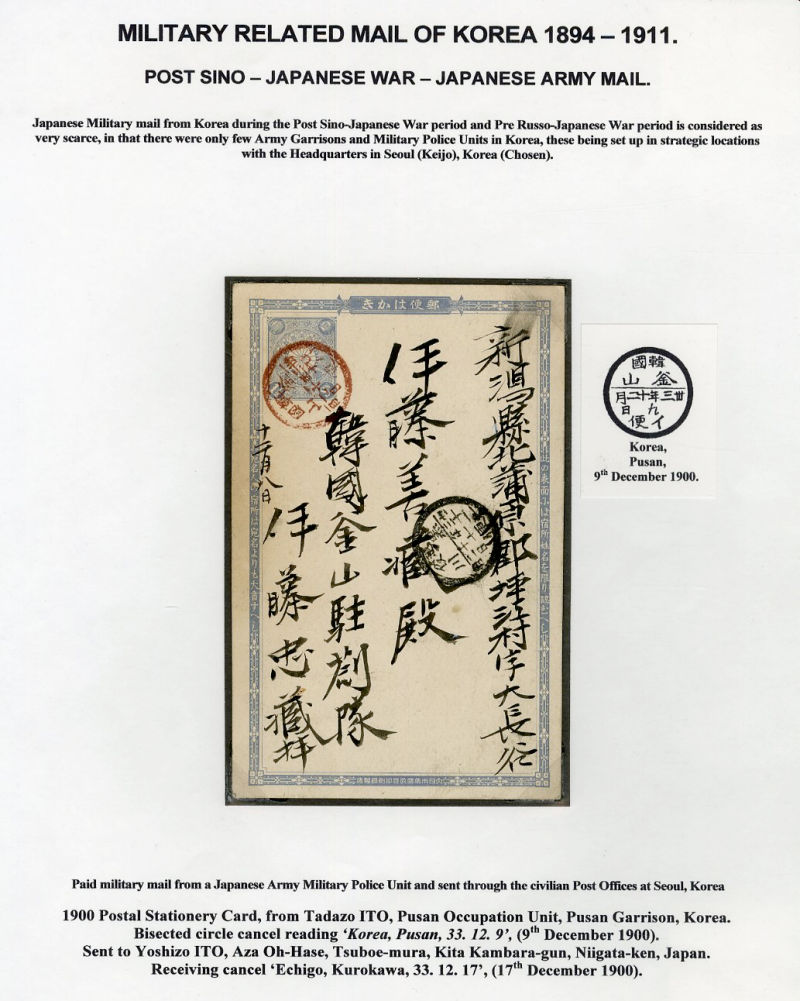 MILITARY RELATED MAIL OF KOREA 1894 – 1911.
POST SINO – JAPANESE WAR – JAPANESE ARMY MAIL.
Japanese Military mail from Korea during the Post Sino-Japanese War period and Pre Russo-Japanese War period is considered as
very scarce, in that there were only few Army Garrisons and Military Police Units in Korea, these being set up in strategic locations
with the Headquarters in Seoul (Keijo), Korea (Chosen).
郵便はかき
新潟縣北蒲原郡坪穴村字大長谷
伊藤善藏殿
韓國釜山駐劄隊
伊藤忠藏拝
十二月八日
韓國
釜山
卅三年十二月
九日
イ便
Korea,
Pusan,
9th December 1900.
Paid military mail from a Japanese Army Military Police Unit and sent through the civilian Post Offices at Seoul, Korea
1900 Postal Stationery Card, from Tadazo ITO, Pusan Occupation Unit, Pusan Garrison, Korea.
Bisected circle cancel reading ‘Korea, Pusan, 33. 12. 9’, (9th December 1900).
Sent to Yoshizo ITO, Aza Oh-Hase, Tsuboe-mura, Kita Kambara-gun, Niigata-ken, Japan.
Receiving cancel ‘Echigo, Kurokawa, 33. 12. 17’, (17th December 1900).